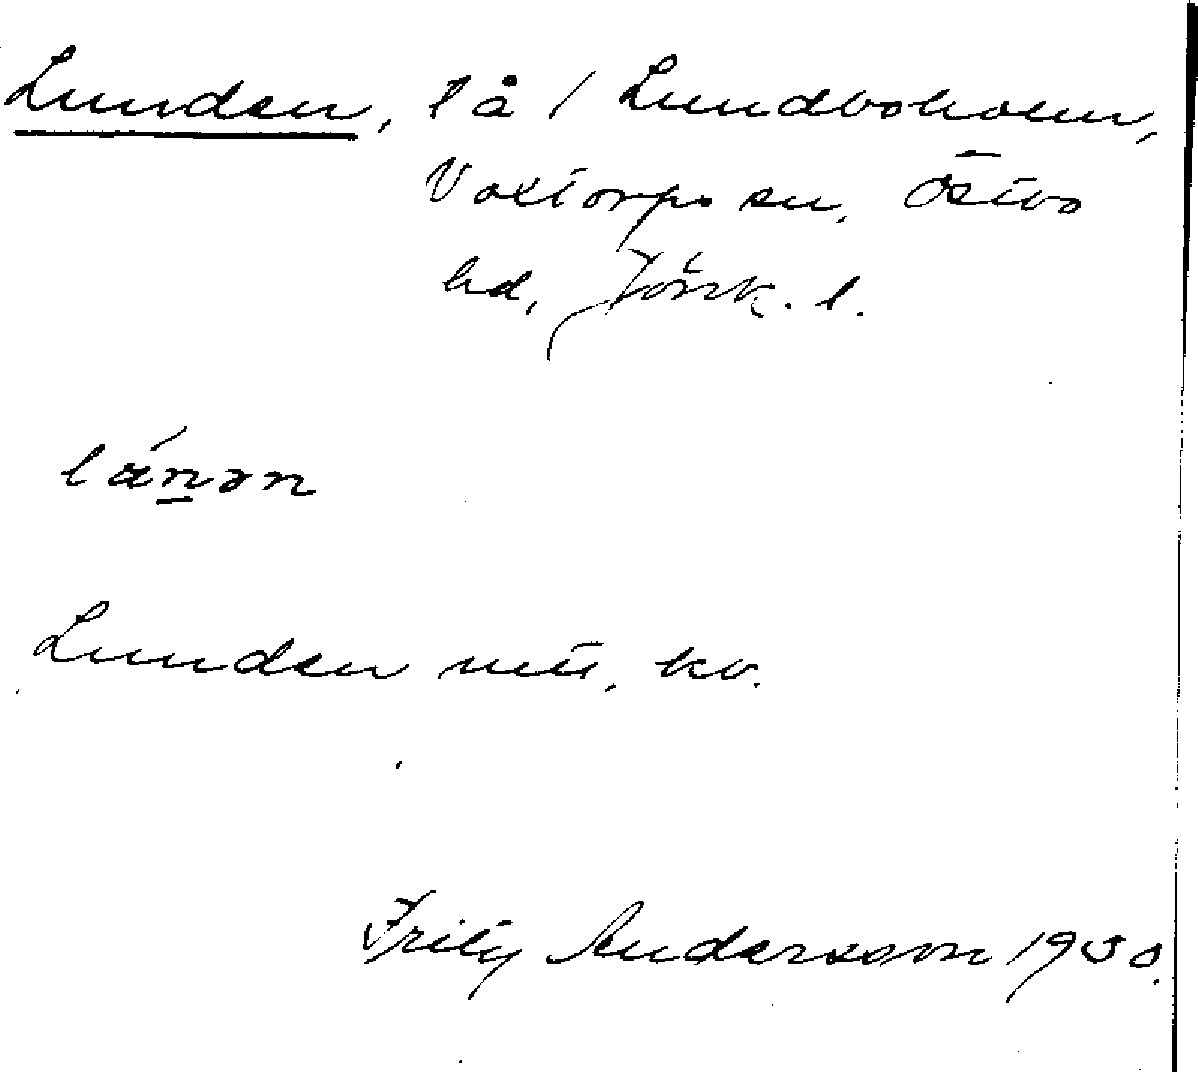 Lunden, lå / Lundboholm,
Voxtorps sn, Östbo
hd, Jönk. l.
lánən
Lunden mtl. kv.
Fritz Andersson 1930.